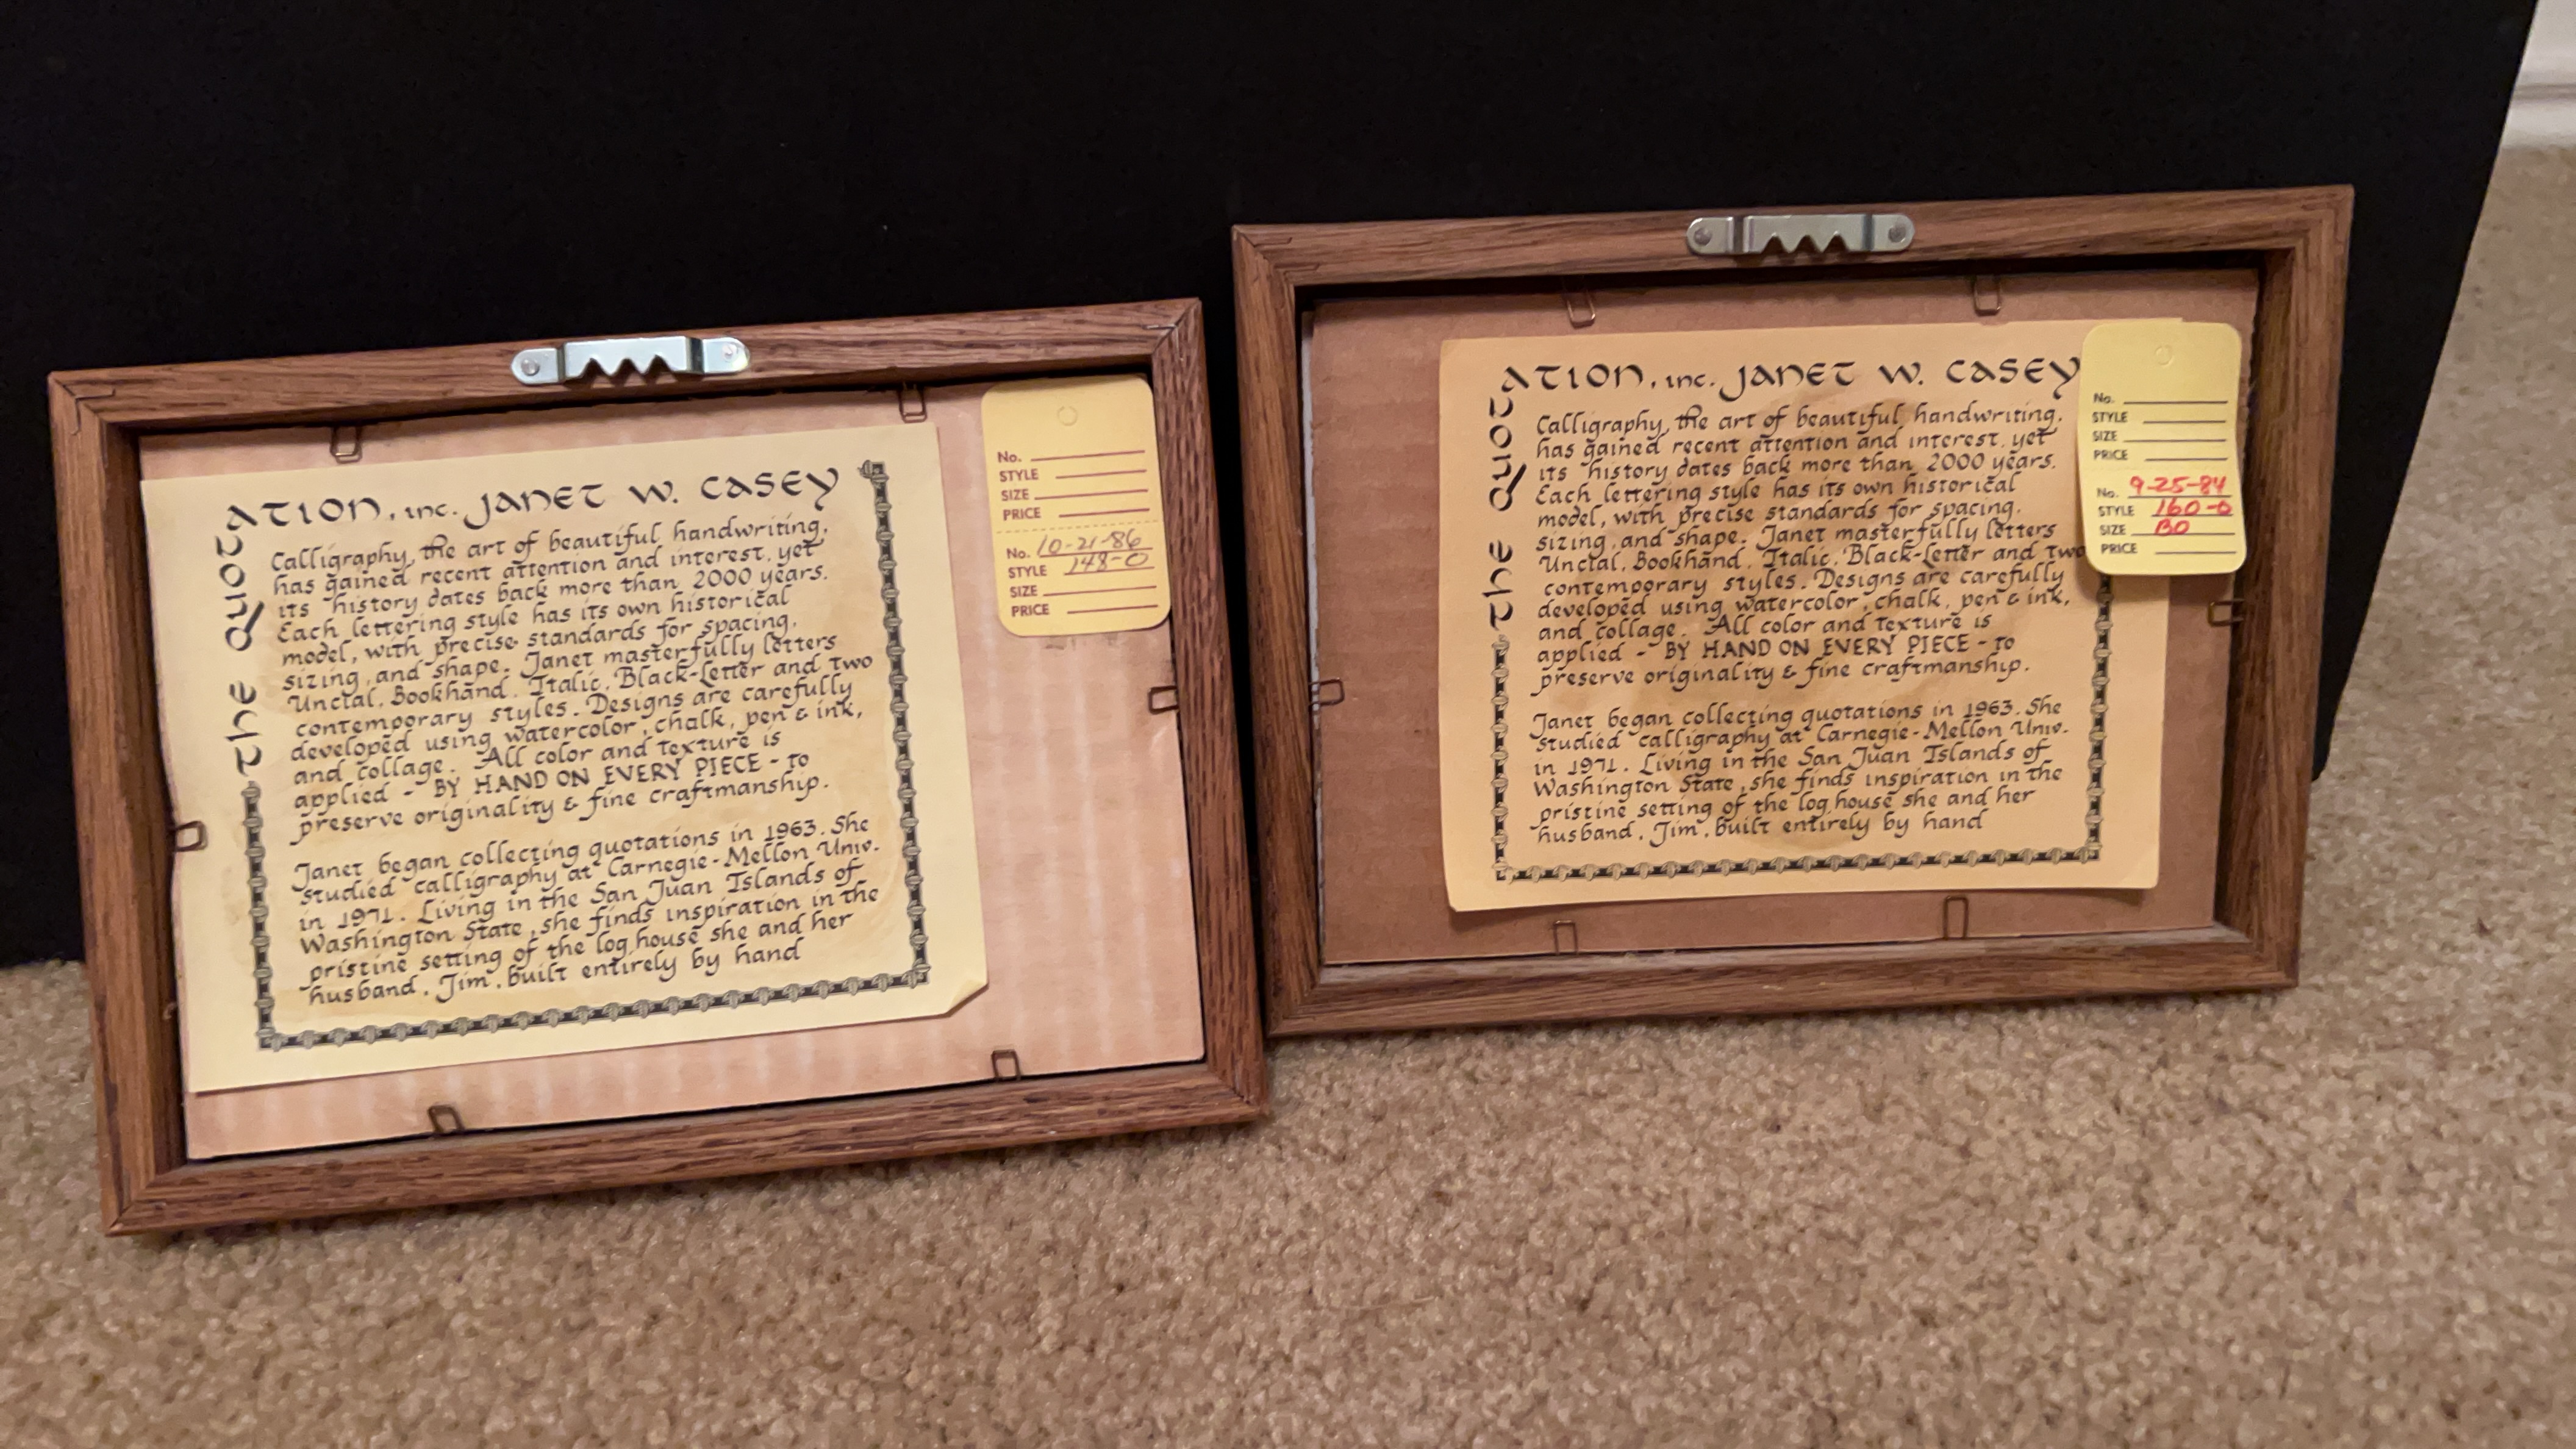 the QUOTATION, inc. JANET W. CASEY
Calligraphy, the art of beautiful handwriting,
has gained recent attention and interest, yet
its history dates back more than 2000 years.
Each lettering style has its own historical
model, with precise standards for spacing,
sizing, and shape. Janet masterfully letters
Uncial, Bookhand, Italic, Black-Letter and two
contemporary styles. Designs are carefully
developed using watercolor, chalk, pen & ink,
and collage. All color and texture is
applied - BY HAND ON EVERY PIECE - to
preserve originality & fine craftmanship.
Janet began collecting quotations in 1963. She
studied calligraphy at Carnegie-Mellon Univ.
in 1971. Living in the San Juan Islands of
Washington State, she finds inspiration in the
pristine setting of the log house she and her
husband, Jim, built entirely by hand
No.
STYLE
SIZE
PRICE
No. 10-21-86
STYLE 148-0
SIZE
PRICE
the QUOTATION, inc. JANET W. CASEY
Calligraphy, the art of beautiful handwriting,
has gained recent attention and interest, yet
its history dates back more than 2000 years.
Each lettering style has its own historical
model, with precise standards for spacing,
sizing, and shape. Janet masterfully letters
Uncial, Bookhand, Italic, Black-Letter and two
contemporary styles. Designs are carefully
developed using watercolor, chalk, pen & ink,
and collage. All color and texture is
applied - BY HAND ON EVERY PIECE - to
preserve originality & fine craftmanship.
Janet began collecting quotations in 1963. She
studied calligraphy at Carnegie-Mellon Univ.
in 1971. Living in the San Juan Islands of
Washington State, she finds inspiration in the
pristine setting of the log house she and her
husband, Jim, built entirely by hand
No.
STYLE
SIZE
PRICE
No. 9-25-84
STYLE 160-0
SIZE BO
PRICE